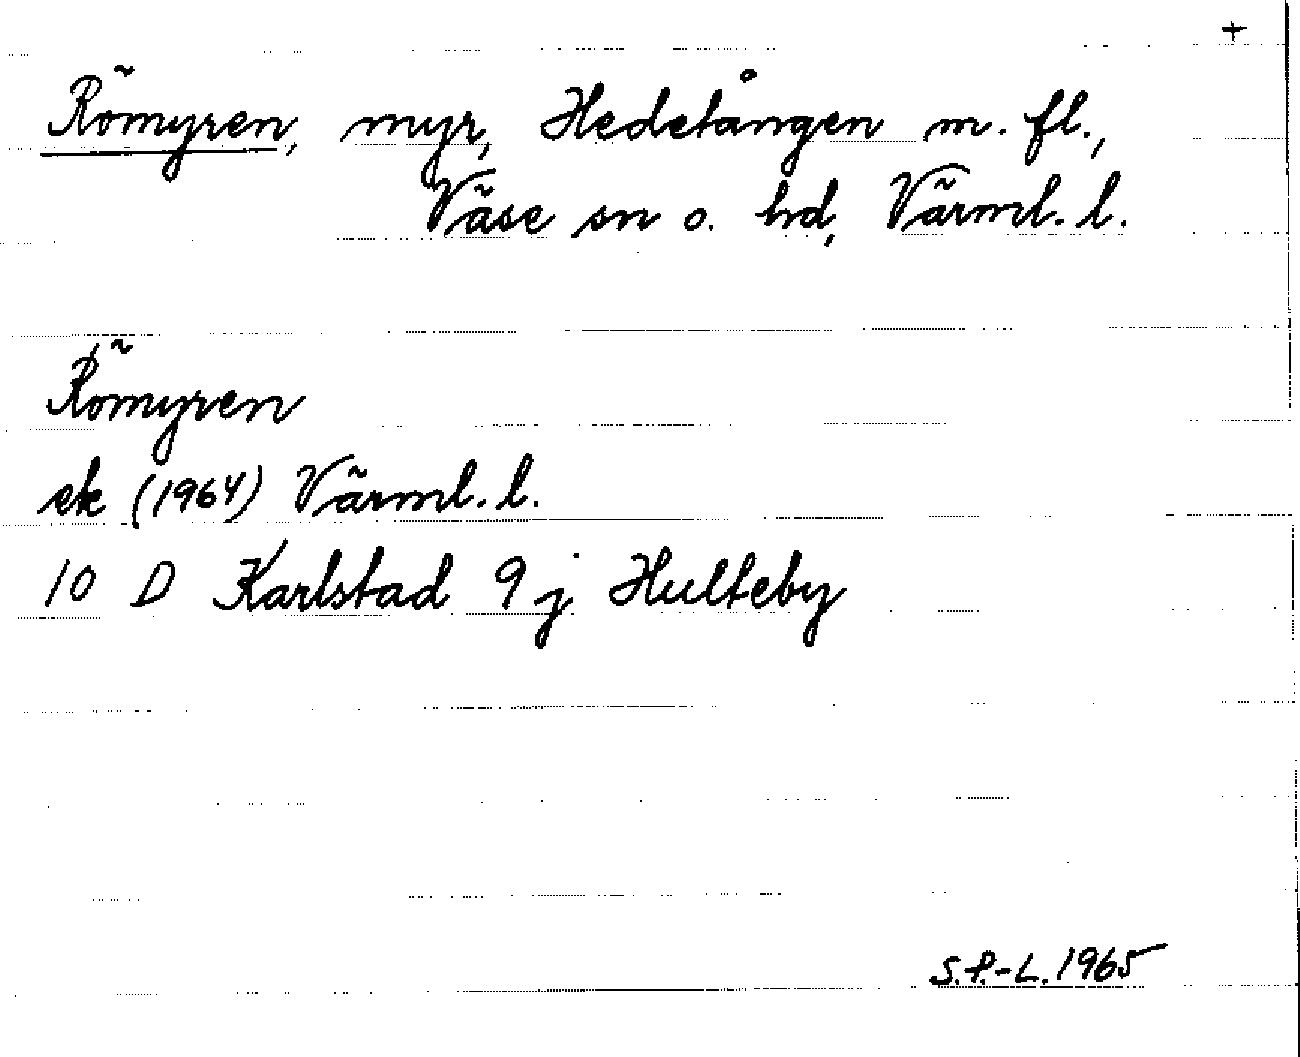 +
Römyren, myr, Hedetången m. fl.,
Väse sn o. hd, Värml. l.
Römyren
ek (1964) Värml. l.
10 D Karlstad 9 j Hulteby
S.P.-L. 1965